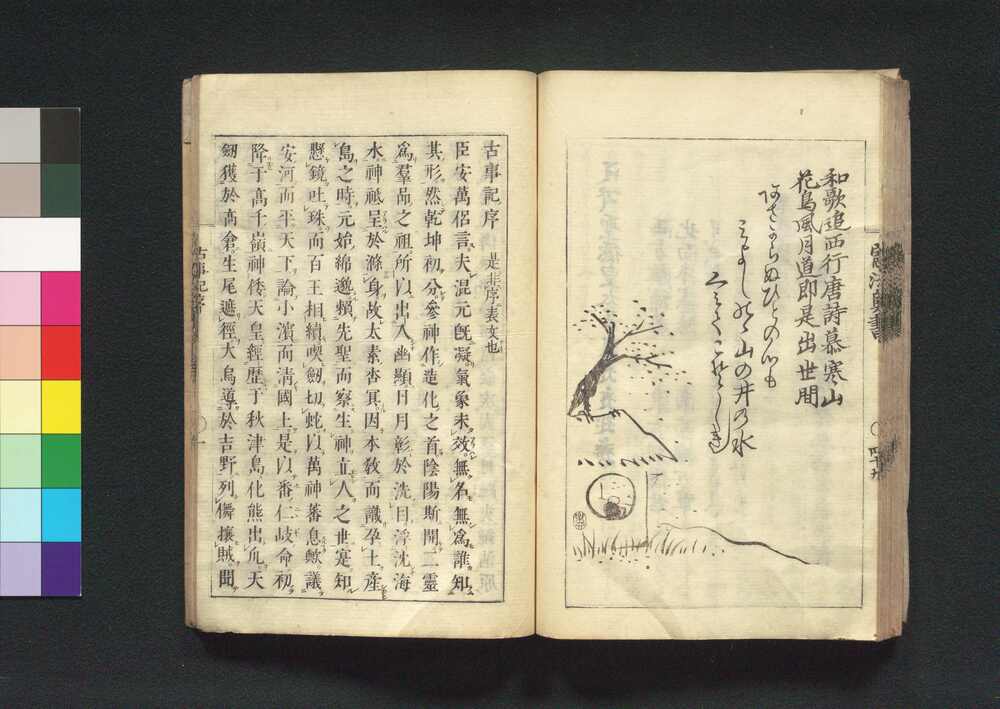 和歌追西行唐詩慕寒山
花鳥風月道即是出世間
山の井の水
古事記序 是非序表文也
臣安萬侶言夫混元既凝氣象未效無名無爲誰知
其形然乾坤初分參神作造化之首陰陽斯開二靈
爲羣品之祖所以出入幽顯日月彰於洗目浮沈海
水神祇呈於滌身故太素杳冥因本敎而識孕土產
島之時元始綿邈頼先聖而察生神立人之世寔知
懸鏡吐珠而百王相續喫劒切蛇以萬神蕃息歟議
安河而平天下論小濱而淸國土是以番仁岐命初
降于高千嶺神倭天皇經歴于秋津島化熊出爪天
劒獲於高倉生尾遮徑大烏導於吉野列儛攘賊聞
古事記序
一